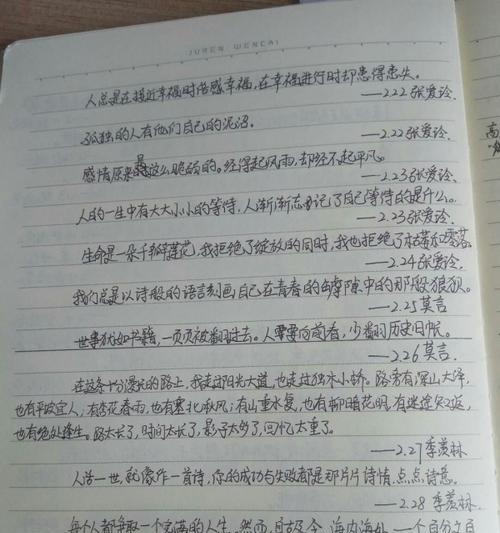 JUREN WENCAI
人总是在接近幸福时倍感幸福,在幸福进行时却患得患失。
——2.22张爱玲.
孤独的人有他们自己的泥沼。
——2.22张爱玲.
感情原来是这么脆弱的。经得起风雨,却经不起平凡。
——2.23张爱玲.
人的一生中有大大小小的等待,人渐渐忘记了自己等待的是什么。
——2.23张爱玲.
生命是一朵千瓣莲花,我拒绝了绽放的同时,我也拒绝了枯萎和零落.
——2.24张爱玲.
我们总是以诗般的语言刻画自己在青春的罅隙中的那段狼狈。
——2.25莫言
世事犹如书籍,一页页被翻过去。人需要向前看,少翻历史旧帐。
——2.26莫言.
在这条十分漫长的路上,我走过阳光大道,也走过独木小桥。路旁有深山大泽,
也有平坡宜人;有杏花春雨,也有塞北秋风;有山重水复,也有柳暗花明,有迷途知返,
也有绝处逢生。路太长了,时间太长了,影子太多了,回忆太重了。
——2.27季羡林
人活一世,就像作一首诗,你的成功与失败都是那片片诗情,点点诗意。
——2.28 季羡林.
每个人都争取一个完满的人生。然而,自古及今,海内海外,一个百分之百
高